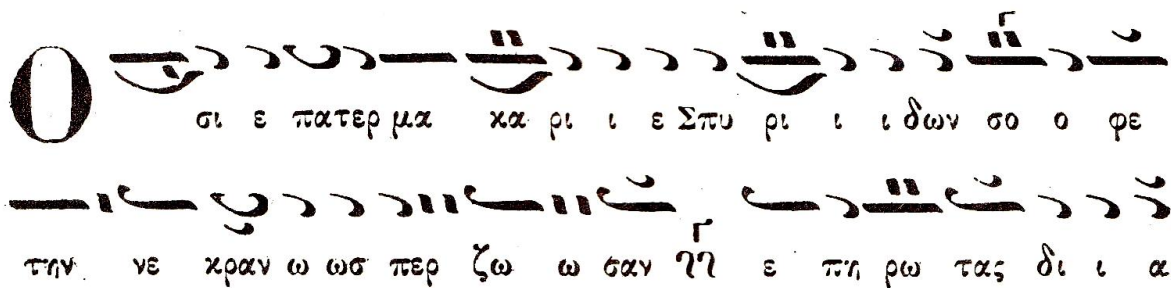 Ο σι ε πατερ μα κα ρι ι ε Σπυ ρι ι ι δων σο ο φε
την νε κραν ω ωσ περ ζω ω σαν ε πη ρω τας δι ι α